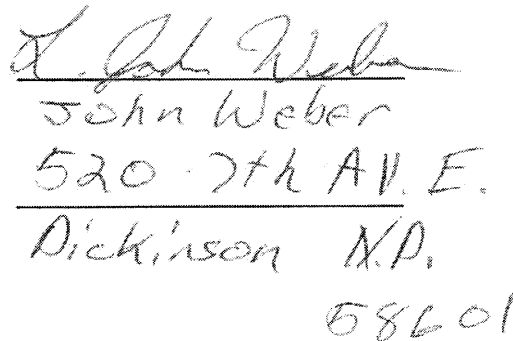 L. John Weber
John Weber
520 7th AV. E.
Dickinson N.D.
58601